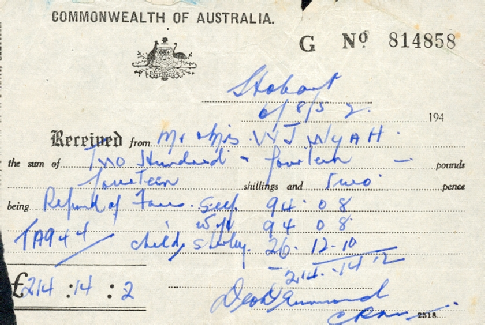 COMMONWEALTH OF AUSTRALIA.
G Nº 814858
Hobart
8/5 2. 194
Received from Mr Mrs W J Wyatt.
the sum of Two Hundred & fourteen — pounds
fourteen shillings and Two pence
being Refund of Fares. Self 94 · 0 8
TA944 Wife 94 0 8
Child, Shirley. 26 · 12 · 10
214 · 14 · 2
£214 : 14 : 2